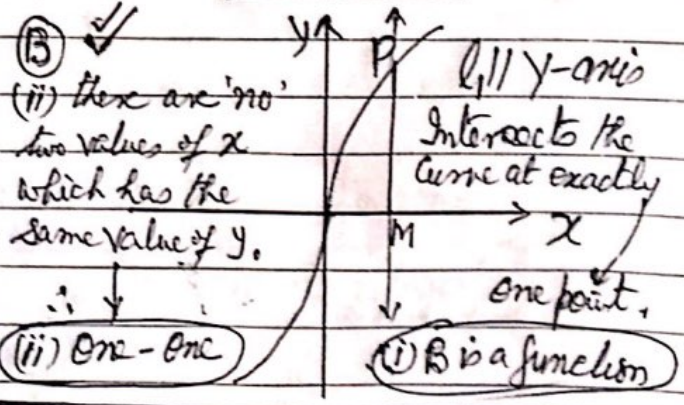 B
(ii) there are 'no'
two values of x
which has the
same value of y.
∴
(ii) One-One
y
P
M
x
l₁ || Y-axis
Intersects the
curve at exactly
one point.
(i) B is a function